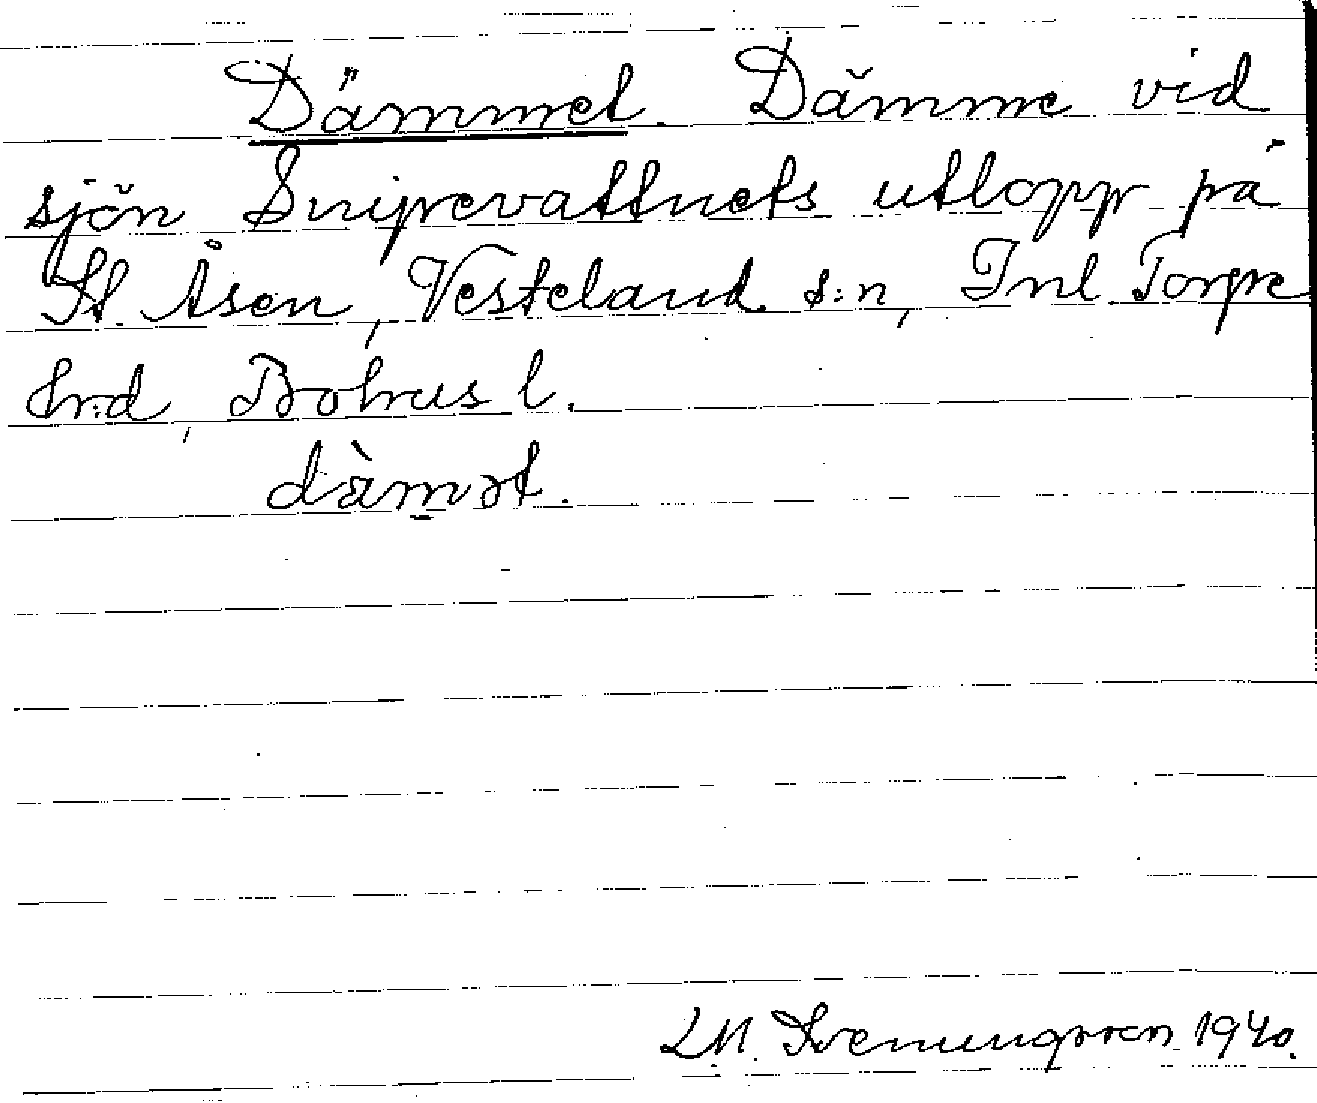 Dämmet. Dämme vid
sjön Snipevattnets utlopp på
St. Åsen, Vesteland s:n, Inl. Torpe
hrd, Bohus l.
dàmət.
L.M. Svenungsson 1940.